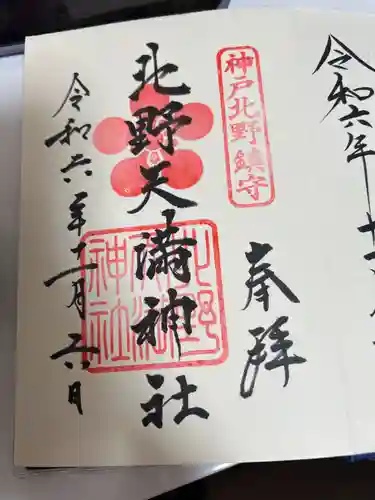 神戸北野鎮守
奉拝
北野天満神社
北野
天満
神社
令和六年十一月六日
令和六年十一月